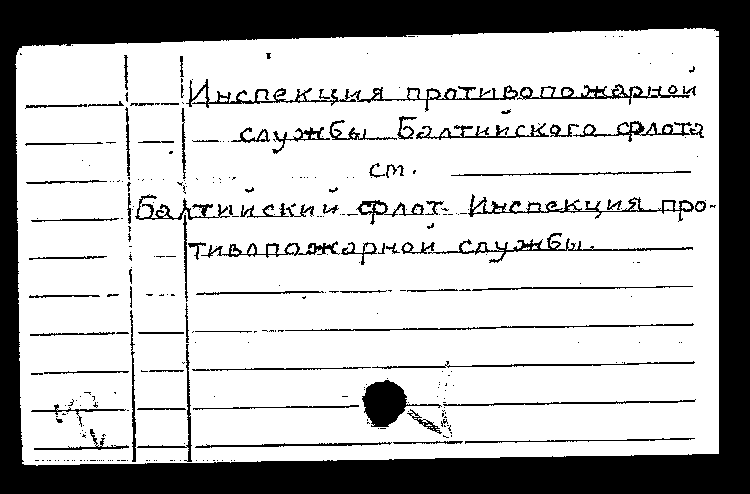 Инспекция противопожарной
службы Балтийского флота
ст.
Балтийский флот. Инспекция про-
тивопожарной службы.